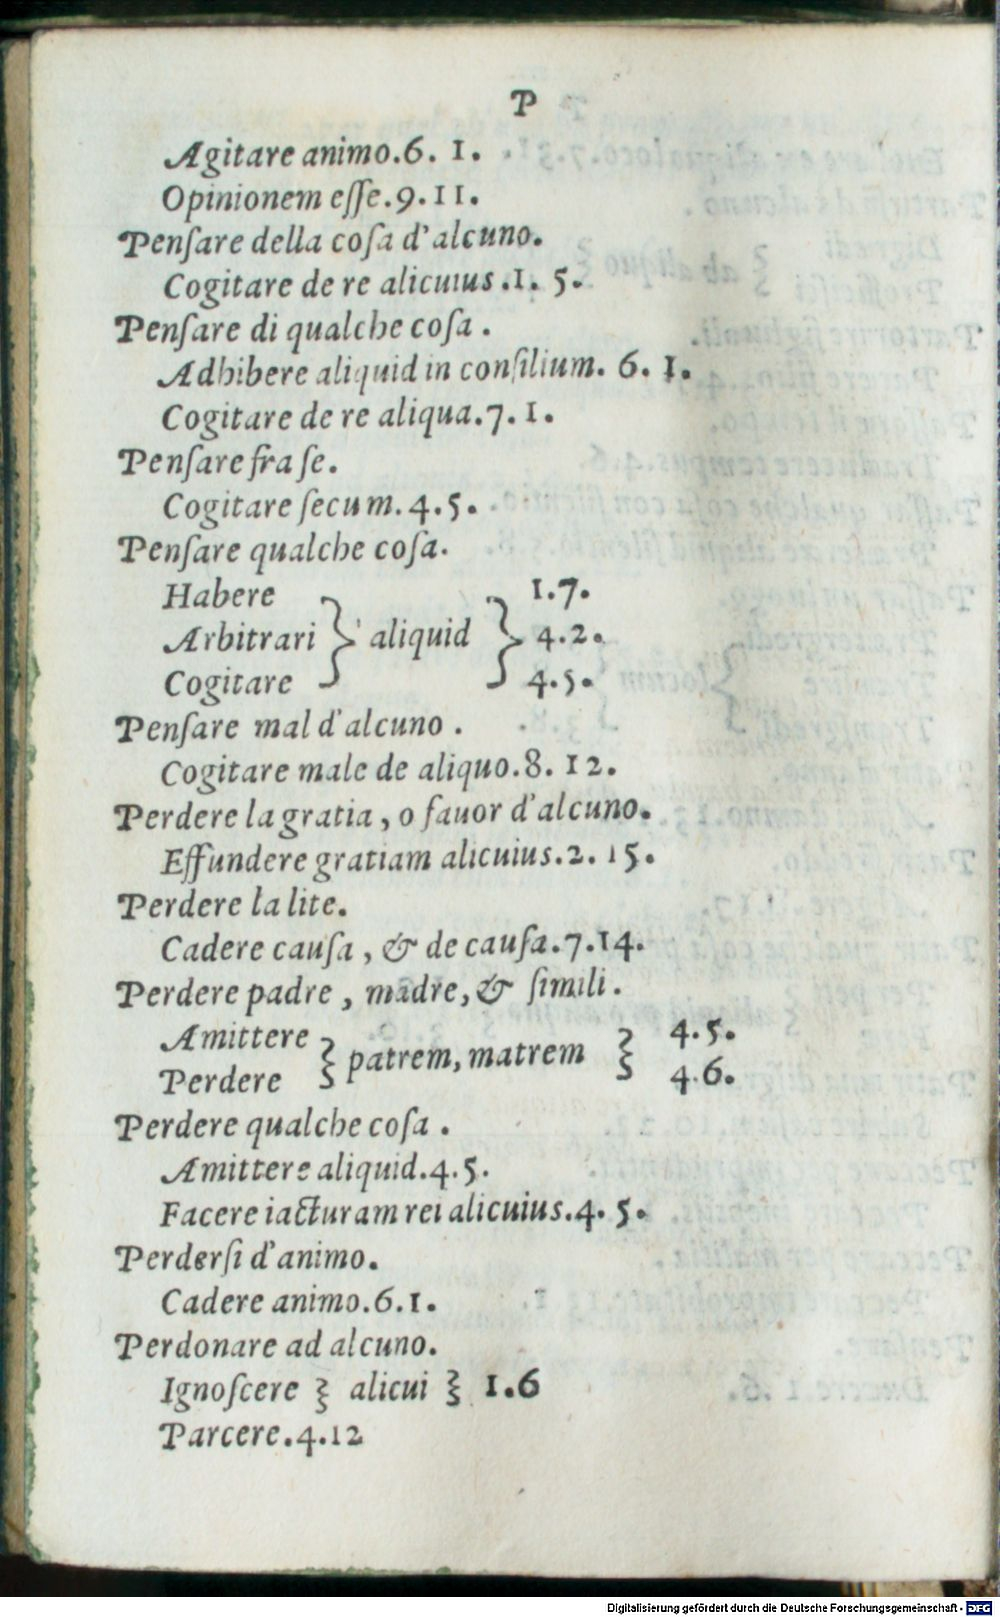 P
Agitare animo.6. 1.
Opinionem eſſe.9.11.
Penſare della coſa d'alcuno.
Cogitare de re alicuius .1. 5.
Penſare di qualche coſa .
Adhibere aliquid in conſilium. 6. 1.
Cogitare de re aliqua.7. 1.
Penſare fra ſe.
Cogitare ſecum. 4.5.
Penſare qualche coſa.
Habere 1.7.
Arbitrari } aliquid } 4.2.
Cogitare 4.5.
Penſare mal d'alcuno .
Cogitare male de aliquo.8. 12.
Perdere la gratia , o fauor d'alcuno.
Effundere gratiam alicuius.2. 15.
Perdere la lite.
Cadere cauſa , & de cauſa.7.14.
Perdere padre , madre, & ſimili .
Amittere } patrem, matrem } 4.5.
Perdere 4.6.
Perdere qualche coſa .
Amittere aliquid.4.5.
Facere iacturam rei alicuius.4. 5.
Perderſi d'animo.
Cadere animo.6.1.
Perdonare ad alcuno.
Ignoſcere } alicui } 1.6
Parcere.4.12
Digitalisierung gefördert durch die Deutsche Forschungsgemeinschaft - DFG